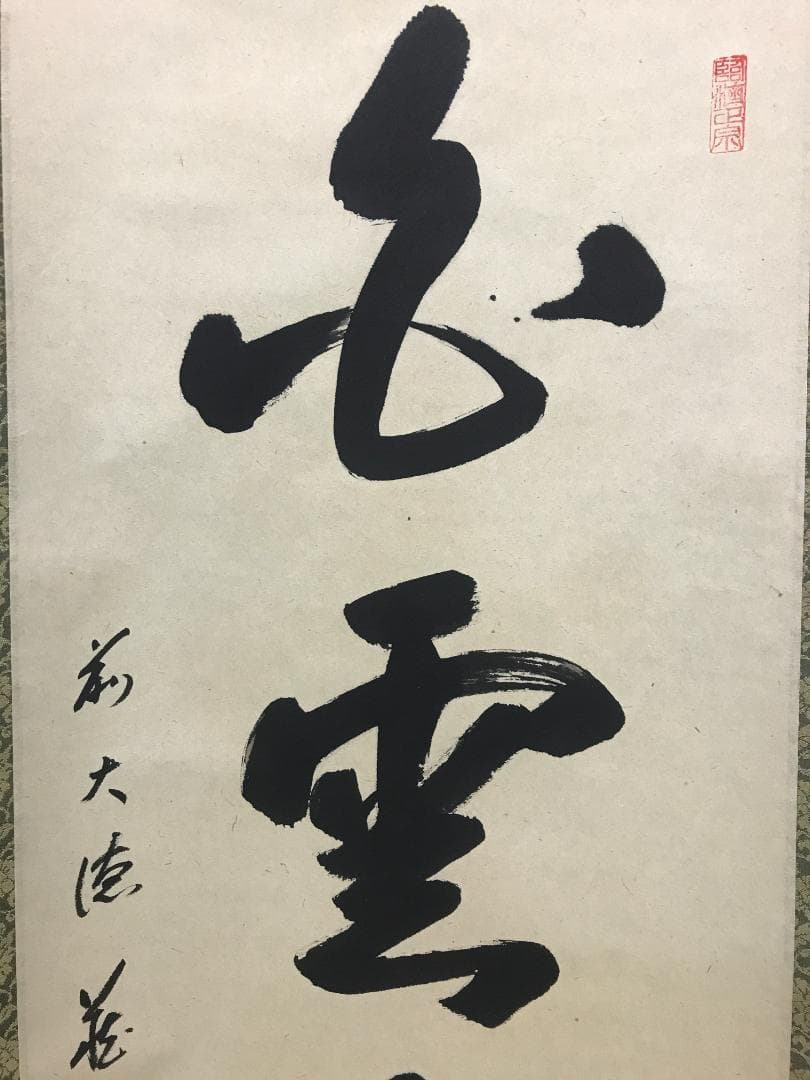 臨濟正宗
白雲
前大徳